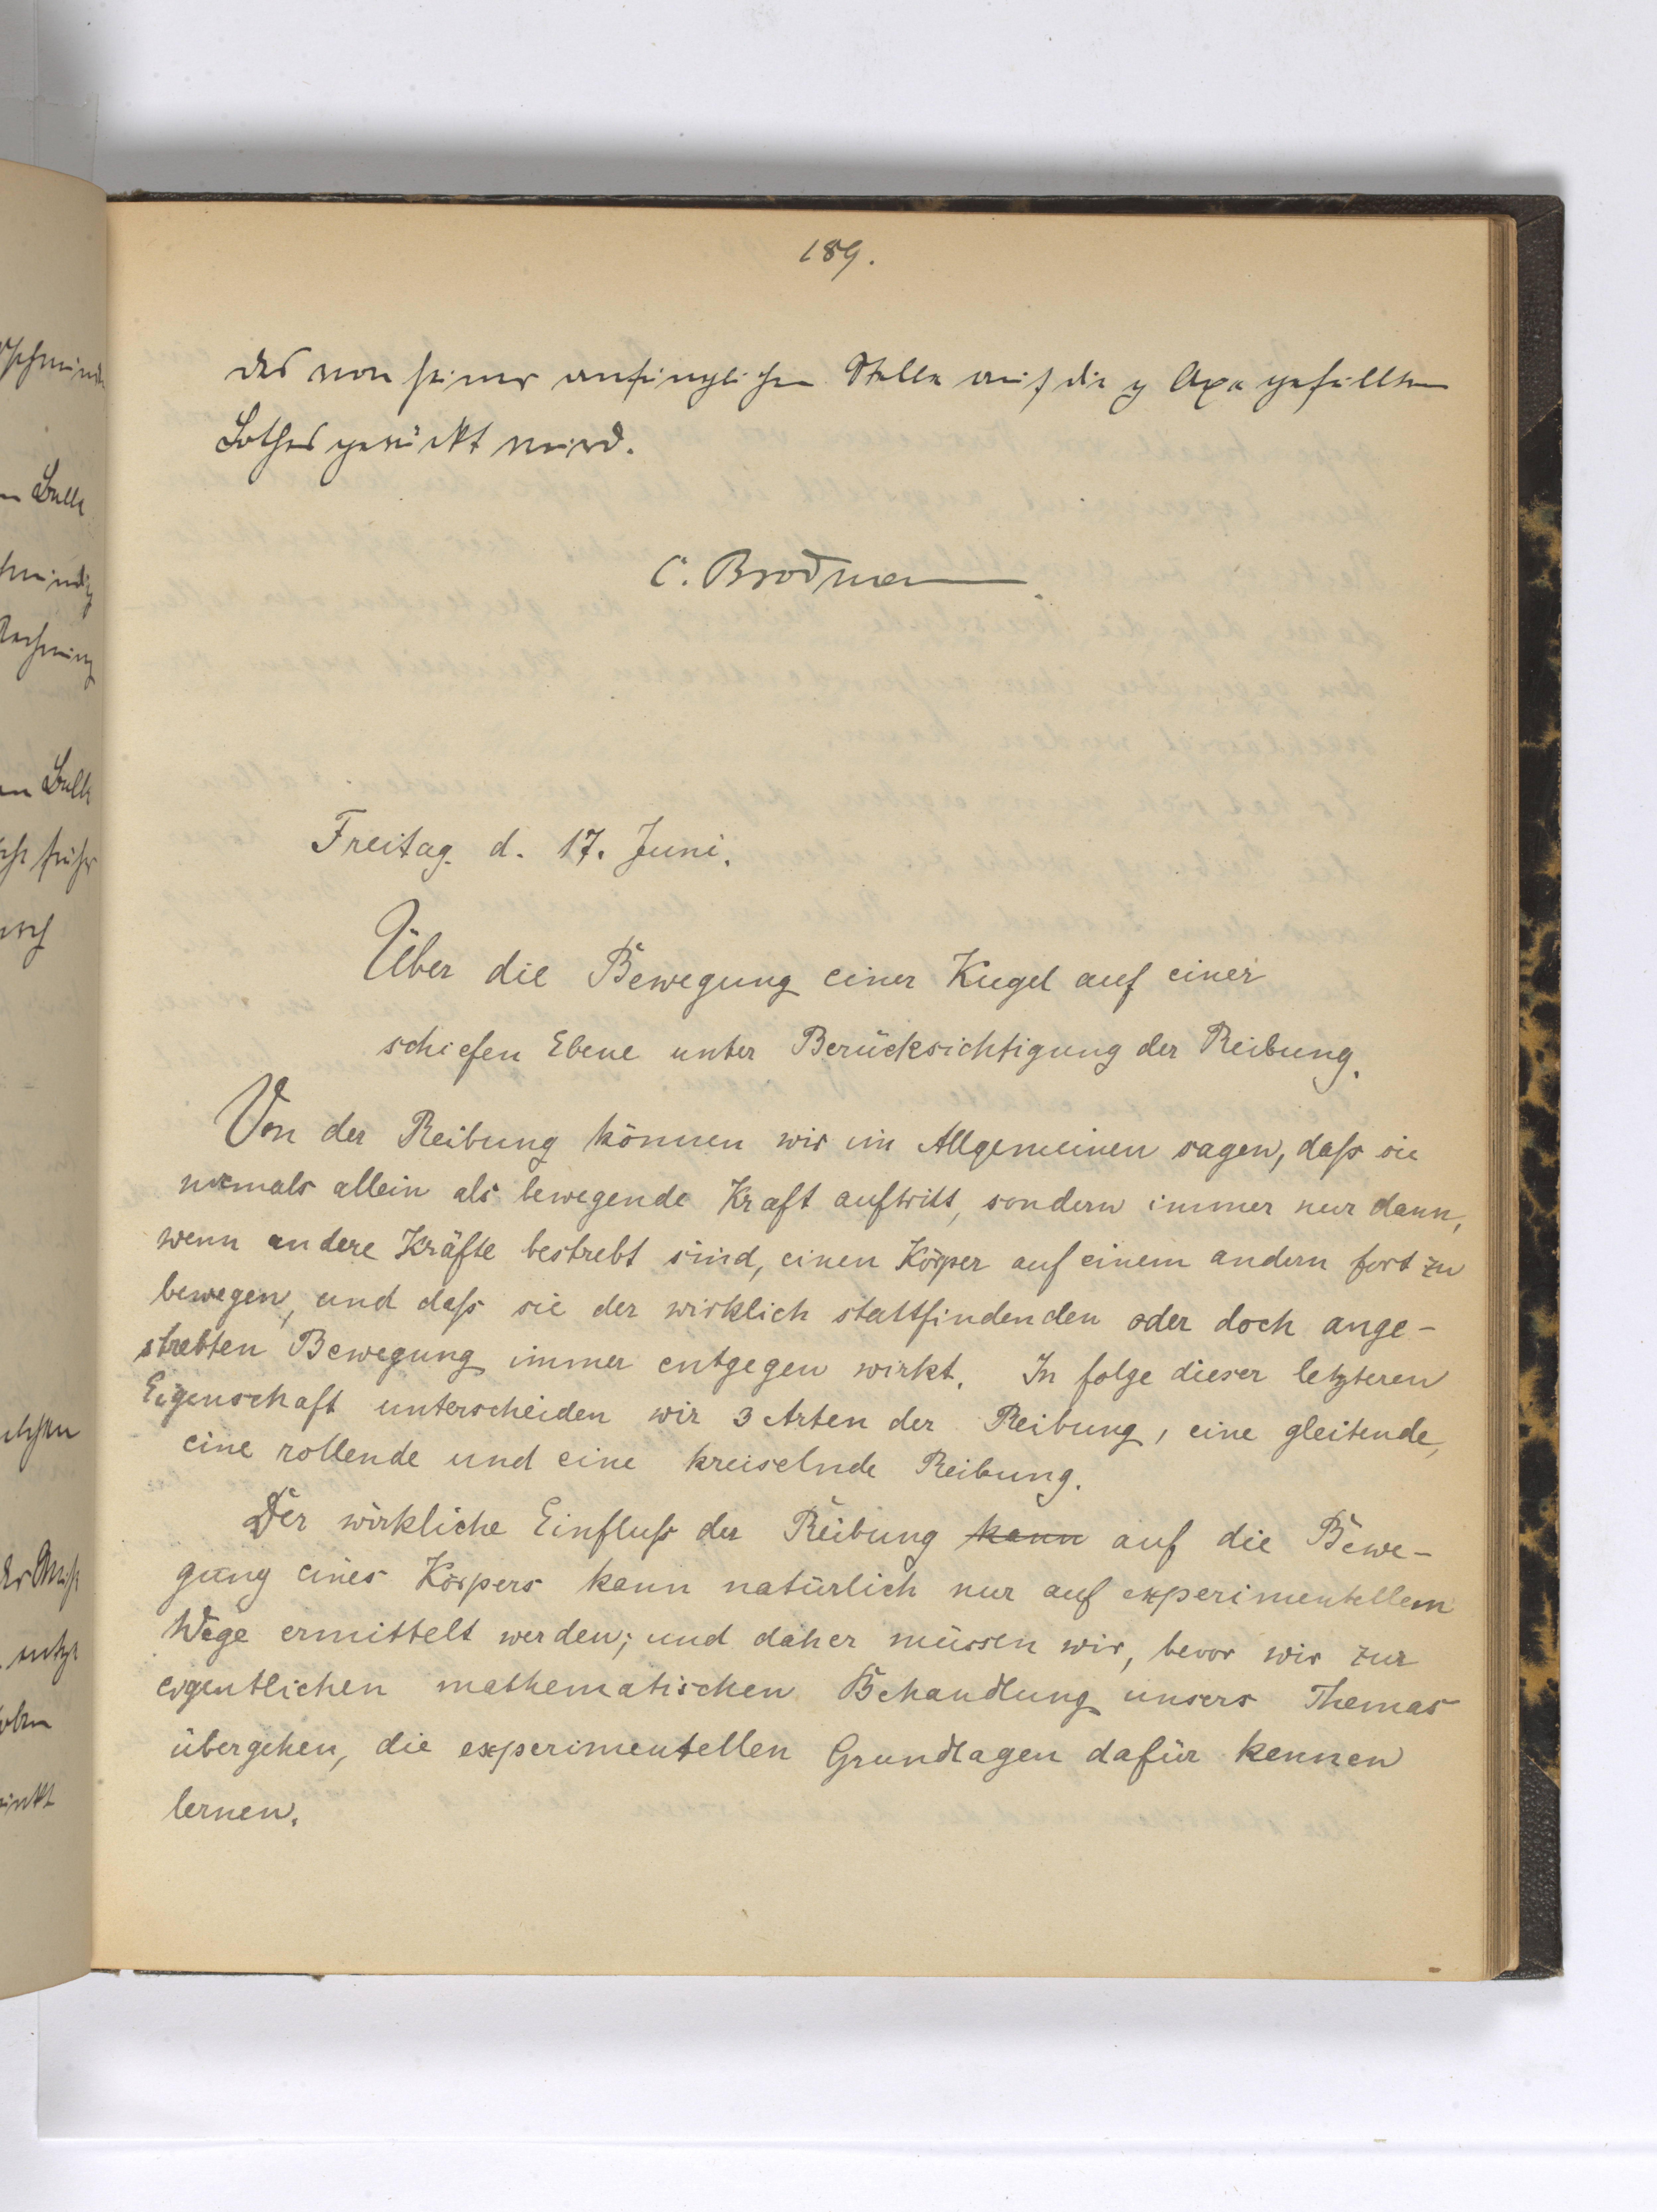 189.
des von seiner anfänglichen Stelle auf die y Axe gefällten
Lothes gerückt wird.
C. Brodmann.
Freitag d. 17. Juni.
Über die Bewegung einer Kugel auf einer
schiefen Ebene unter Berücksichtigung der Reibung.
Von der Reibung können wir im Allgemeinen sagen, daſs sie
niemals allein als bewegende Kraft auftritt, sondern immer nur dann,
wenn andere Kräfte bestrebt sind, einen Körper auf einem andern fort zu
bewegen, und daſs sie der wirklich stattfindenden oder doch ange-
strebten Bewegung immer entgegen wirkt. In folge dieser letzteren
Eigenschaft unterscheiden wir 3 Arten der Reibung, eine gleitende,
eine rollende und eine kreiselnde Reibung.
Der wirkliche Einfluſs der Reibung kann auf die Bewe-
gung eines Körpers kann natürlich nur auf experimentellem
Wege ermittelt werden; und daher müssen wir, bevor wir zur
eigentlichen mathematischen Behandlung unsers Themas
übergehen, die experimentellen Grundlagen dafür kennen
lernen.